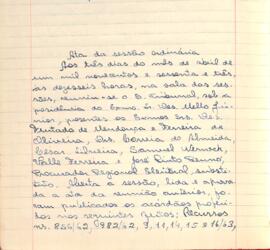 Ata da sessão ordinária
Aos três dias do mês de abril de
um mil novecentos e sessenta e três,
às dezesseis horas, na sala das ses-
sões, reuniu-se o E. Tribunal, sob a
presidência do Exmo. Sr. Des. Mello Jú-
nior, presentes os Exmos. Srs. Des.
Furtado de Mendonça e Ferreira de
Oliveira, Drs. Correia de Almeida,
César Silveira, Samuel Werneck,
Valle Ferreira e José Pinto Renno,
Procurador Regional Eleitoral, substi-
tuto. Aberta a sessão, lida e aprova-
da a ata da reunião anterior, fo-
ram publicados os acórdãos proferi-
dos nos seguintes feitos: Recursos
nrs. 854/62, 982/62, 9, 11, 14, 15 e 16/63,